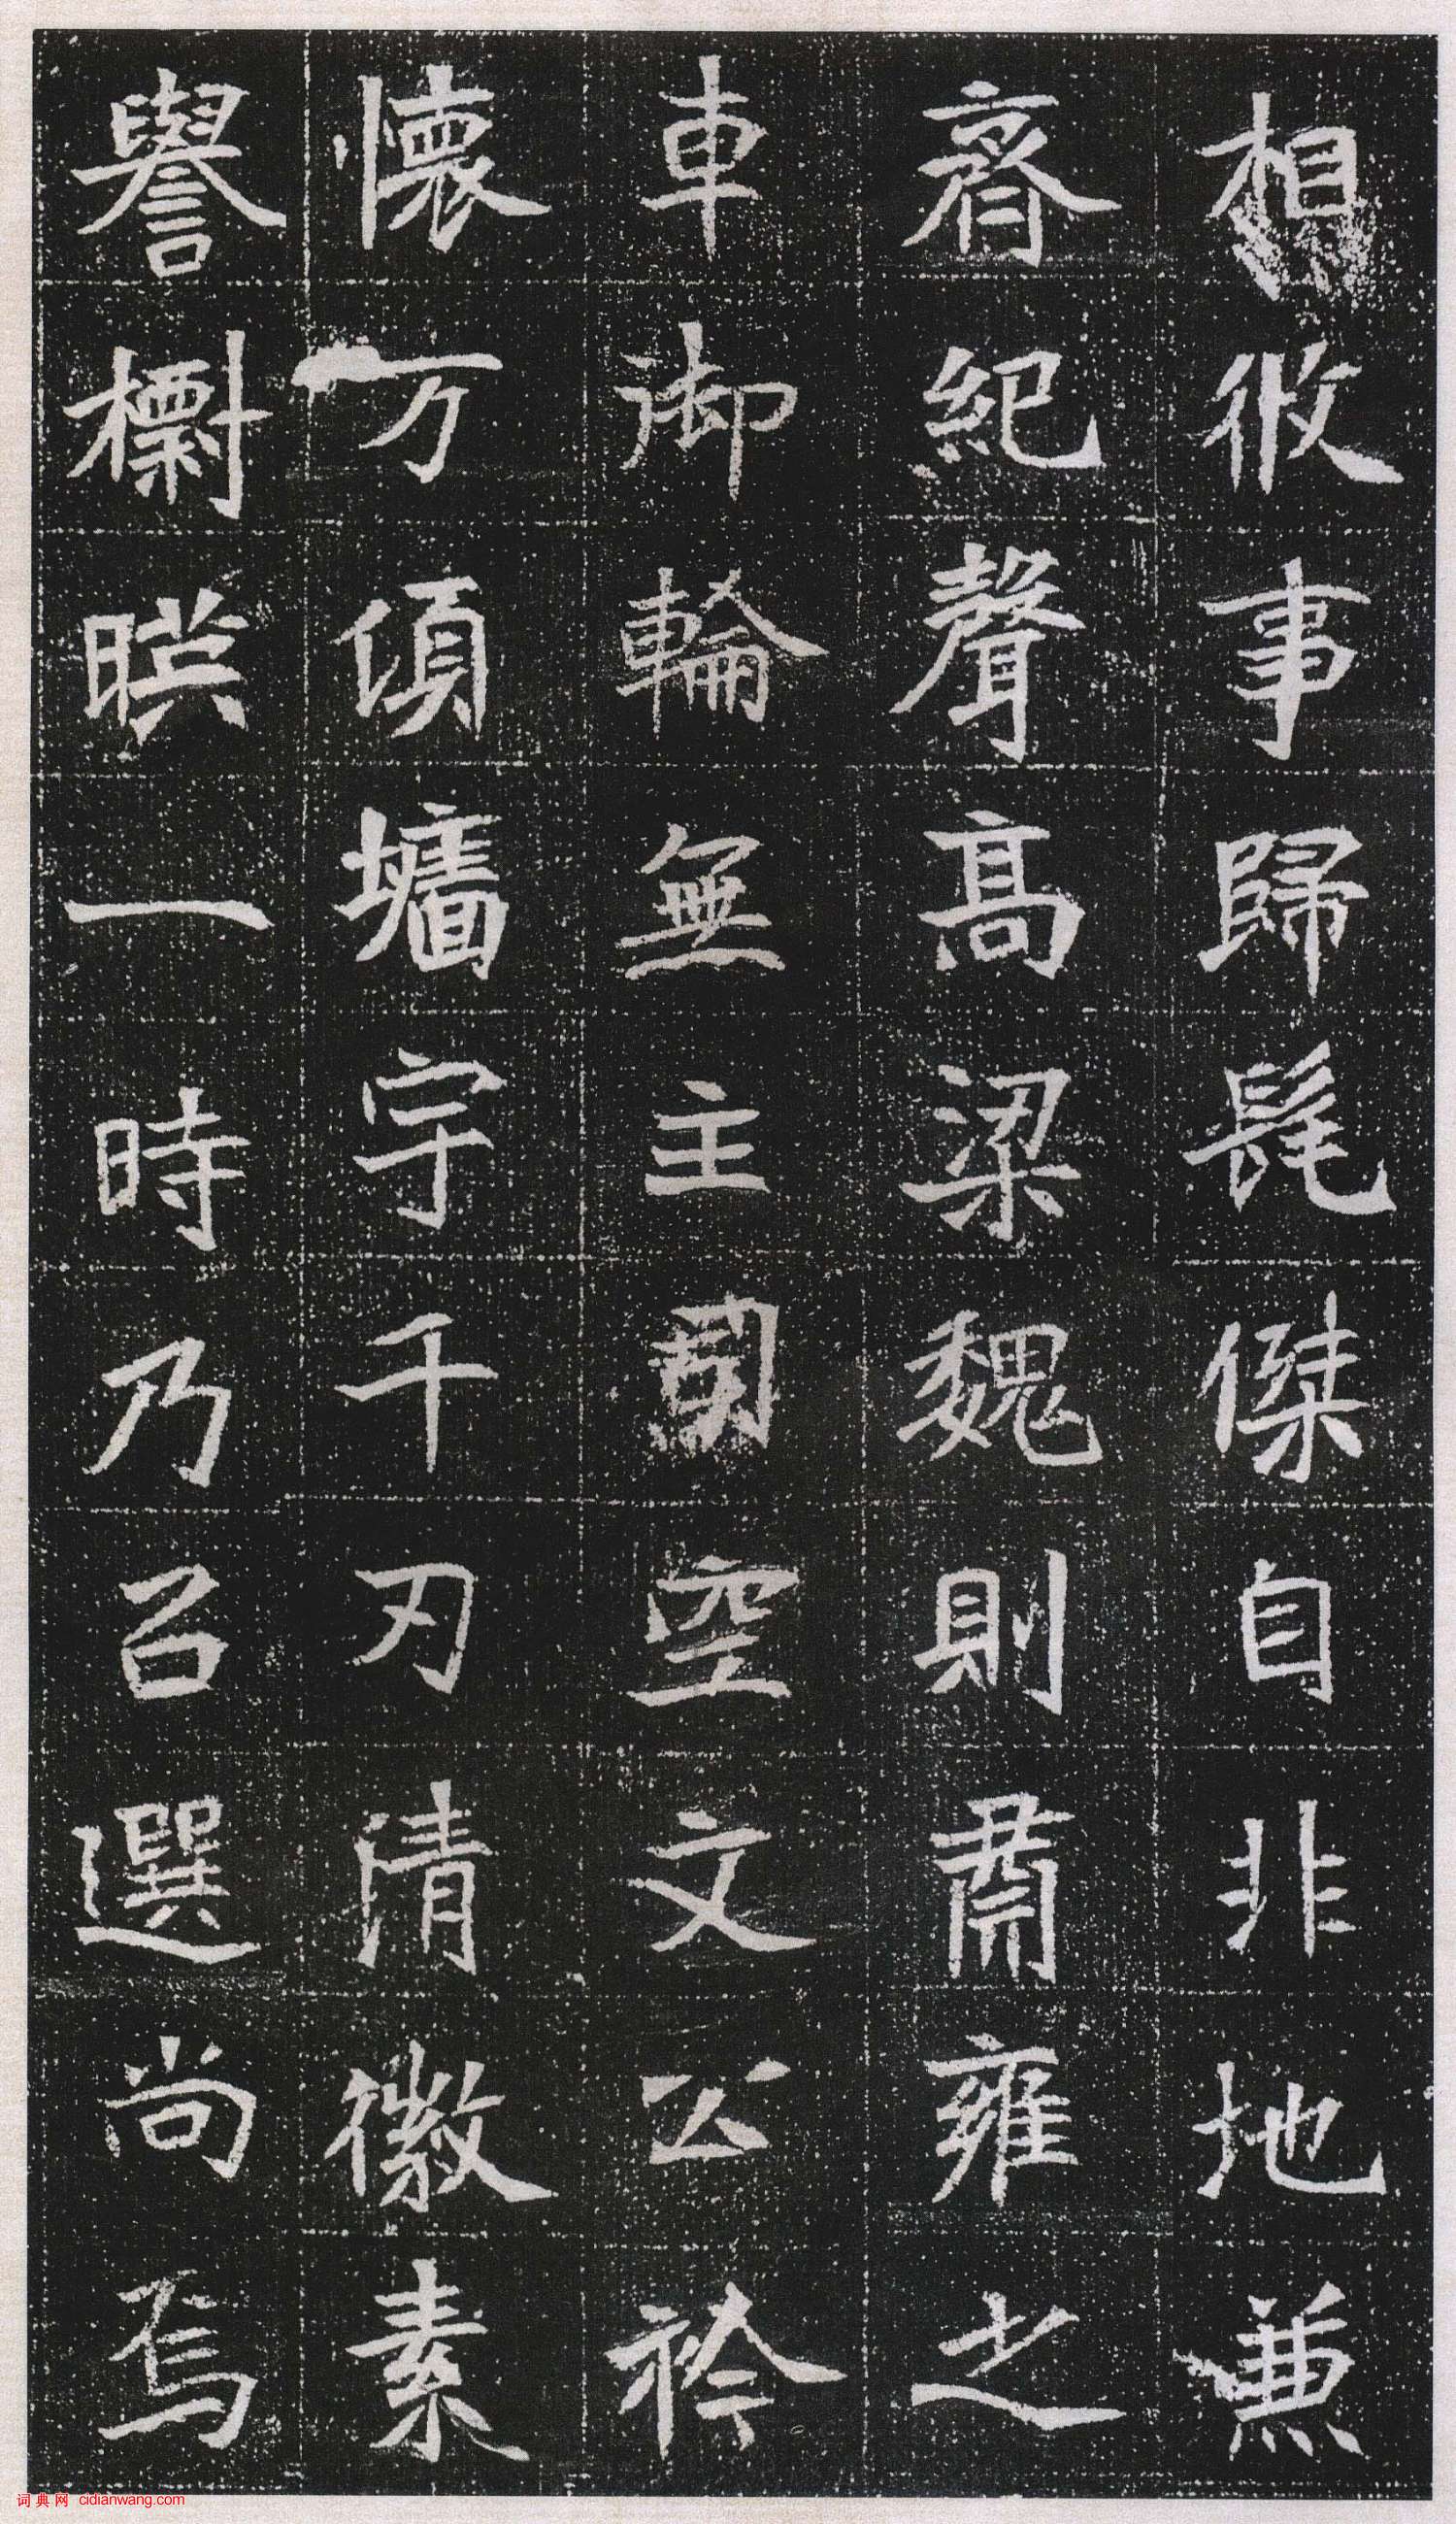 相攸事歸髦傑自非地兼
齊紀聲高梁魏則肅雍之
車御輪無主司空文公衿
懷万頃墻宇千刃清徽素
譽檦暎一時乃召選尚焉
词典网 cidianwang.com